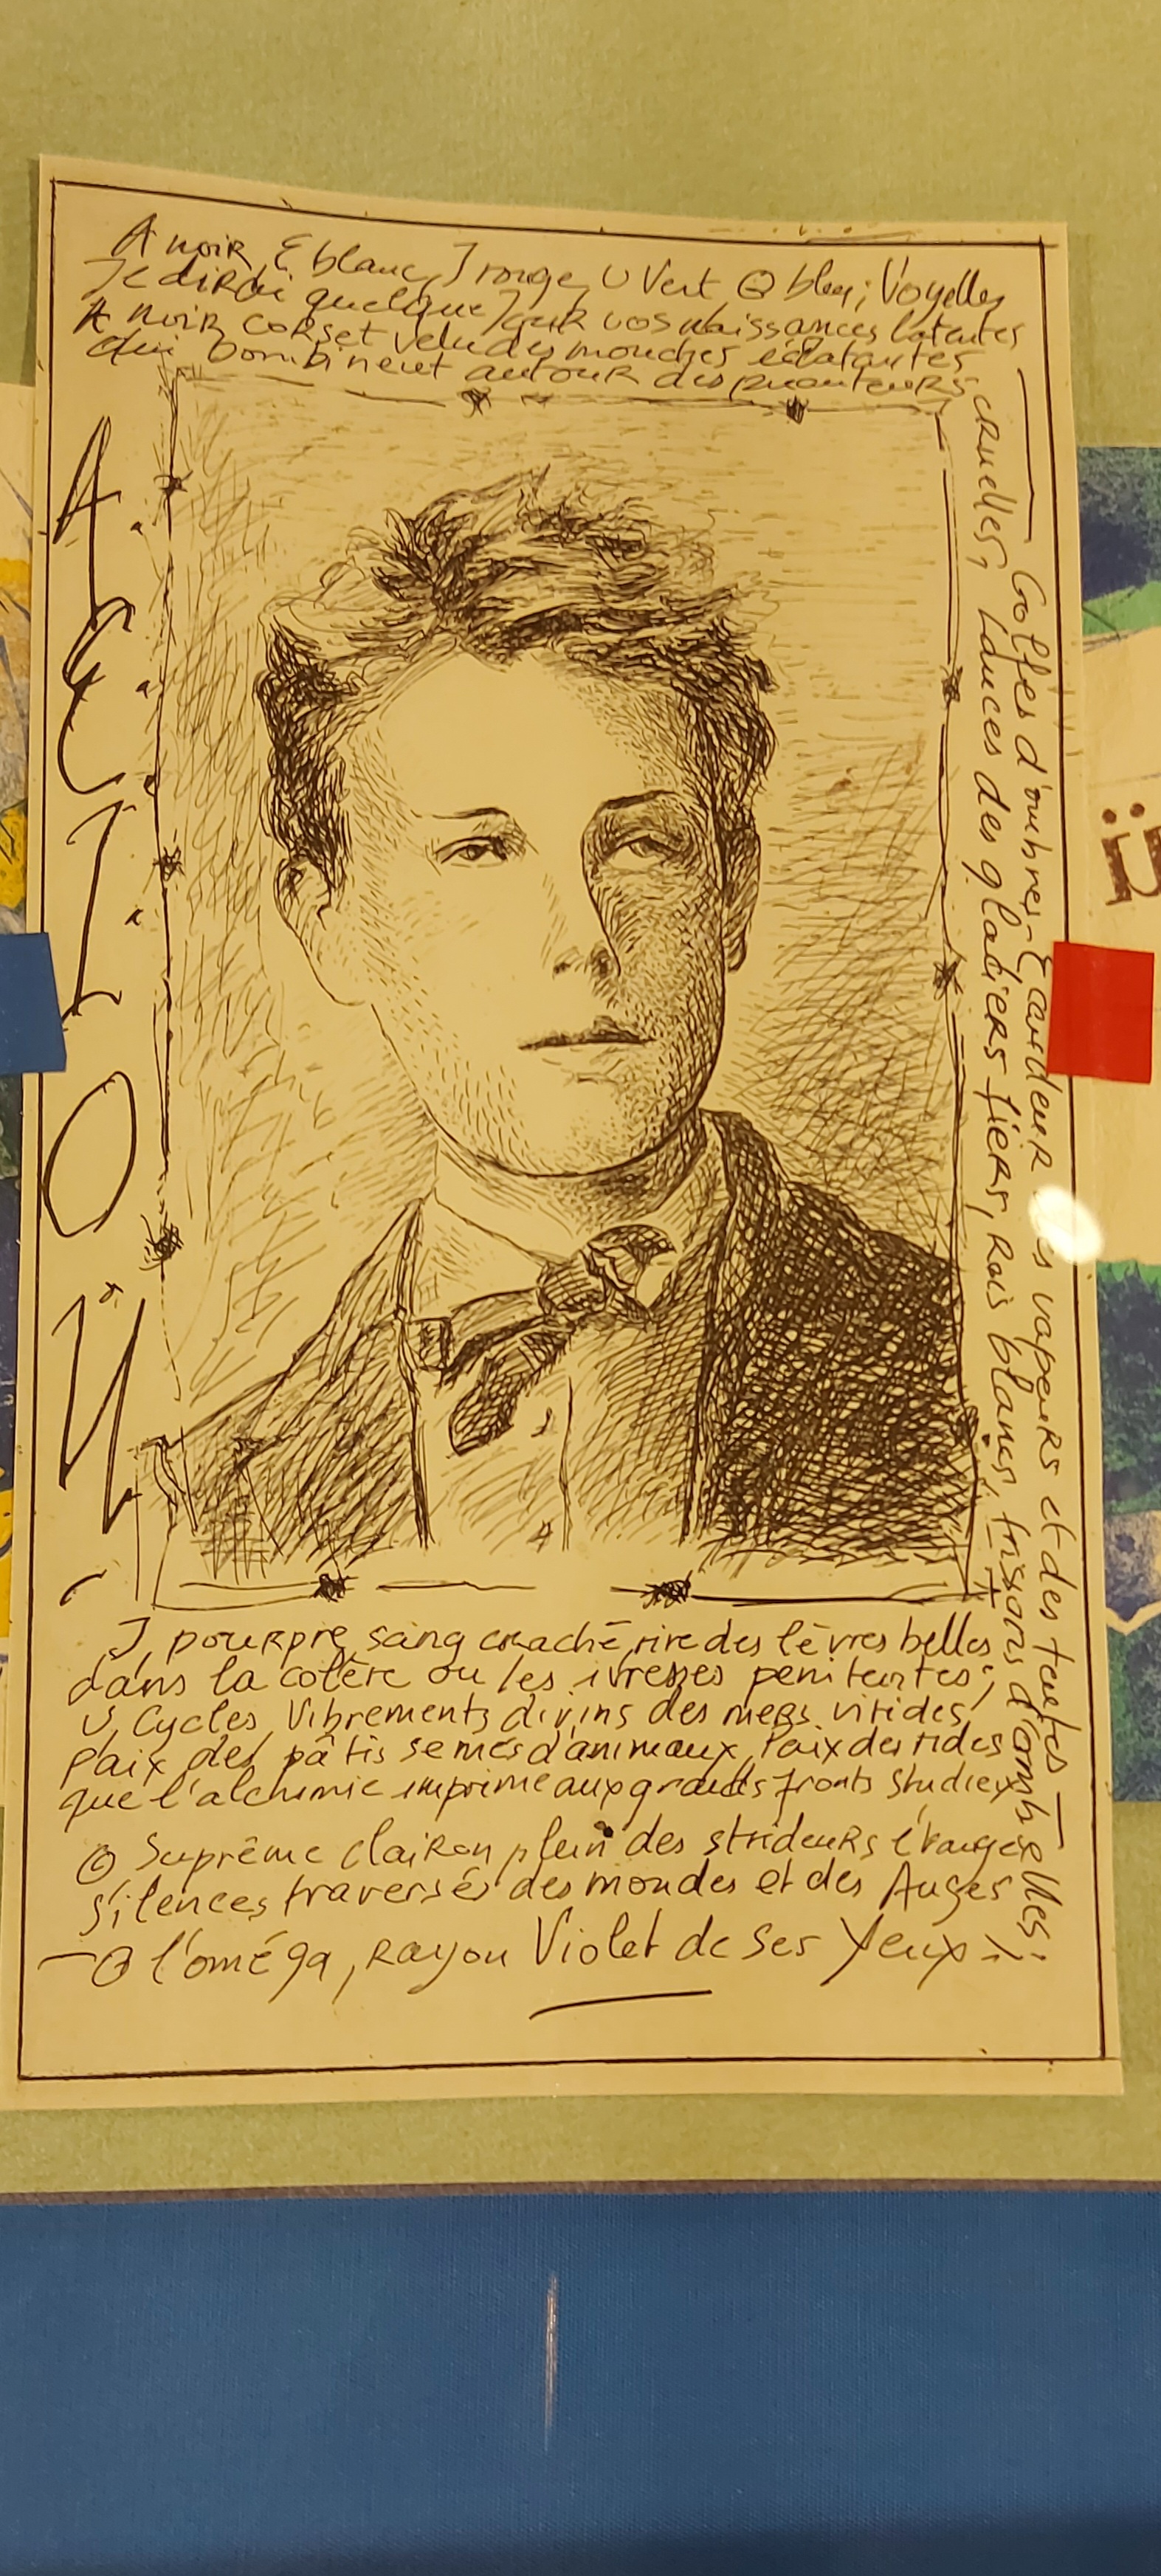 A noir, E blanc, I rouge, U Vert O bleu; Voyelles
Je dirai quelque Jour vos naissances latentes
A noir corset velu des mouches éclatantes
qui bombinent autour des puanteurs
cruelles, Lances des glaciers fiers, Rois blancs, frissons d'ombelles.
Golfes d'ombres - E candeur des vapeurs et des tentes
A
E
I
O
U
I, pourpre, sang craché, rire des lèvres belles
dans la colère ou les ivresses pénitentes;
U, Cycles, Vibrements divins des mers virides,
Paix des pâtis semés d'animaux, Paix des rides
que l'alchimie imprime aux grands fronts studieux
O Suprême clairon plein des strideurs étranges
Silences traversés des mondes et des Anges
— O l'oméga, rayon Violet de Ses Yeux
ü